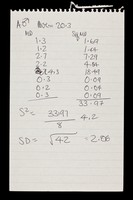 A♂ Mean = 20.3
MD Sq MD
1.3 1.69
1.2 1.44
2.7 7.29
2.2 4.84
4.3 18.49
0.3 0.09
0.2 0.04
0.3 0.09
33.97
S² = 33.97 / 8 4.2
SD = √4.2 = 2.06